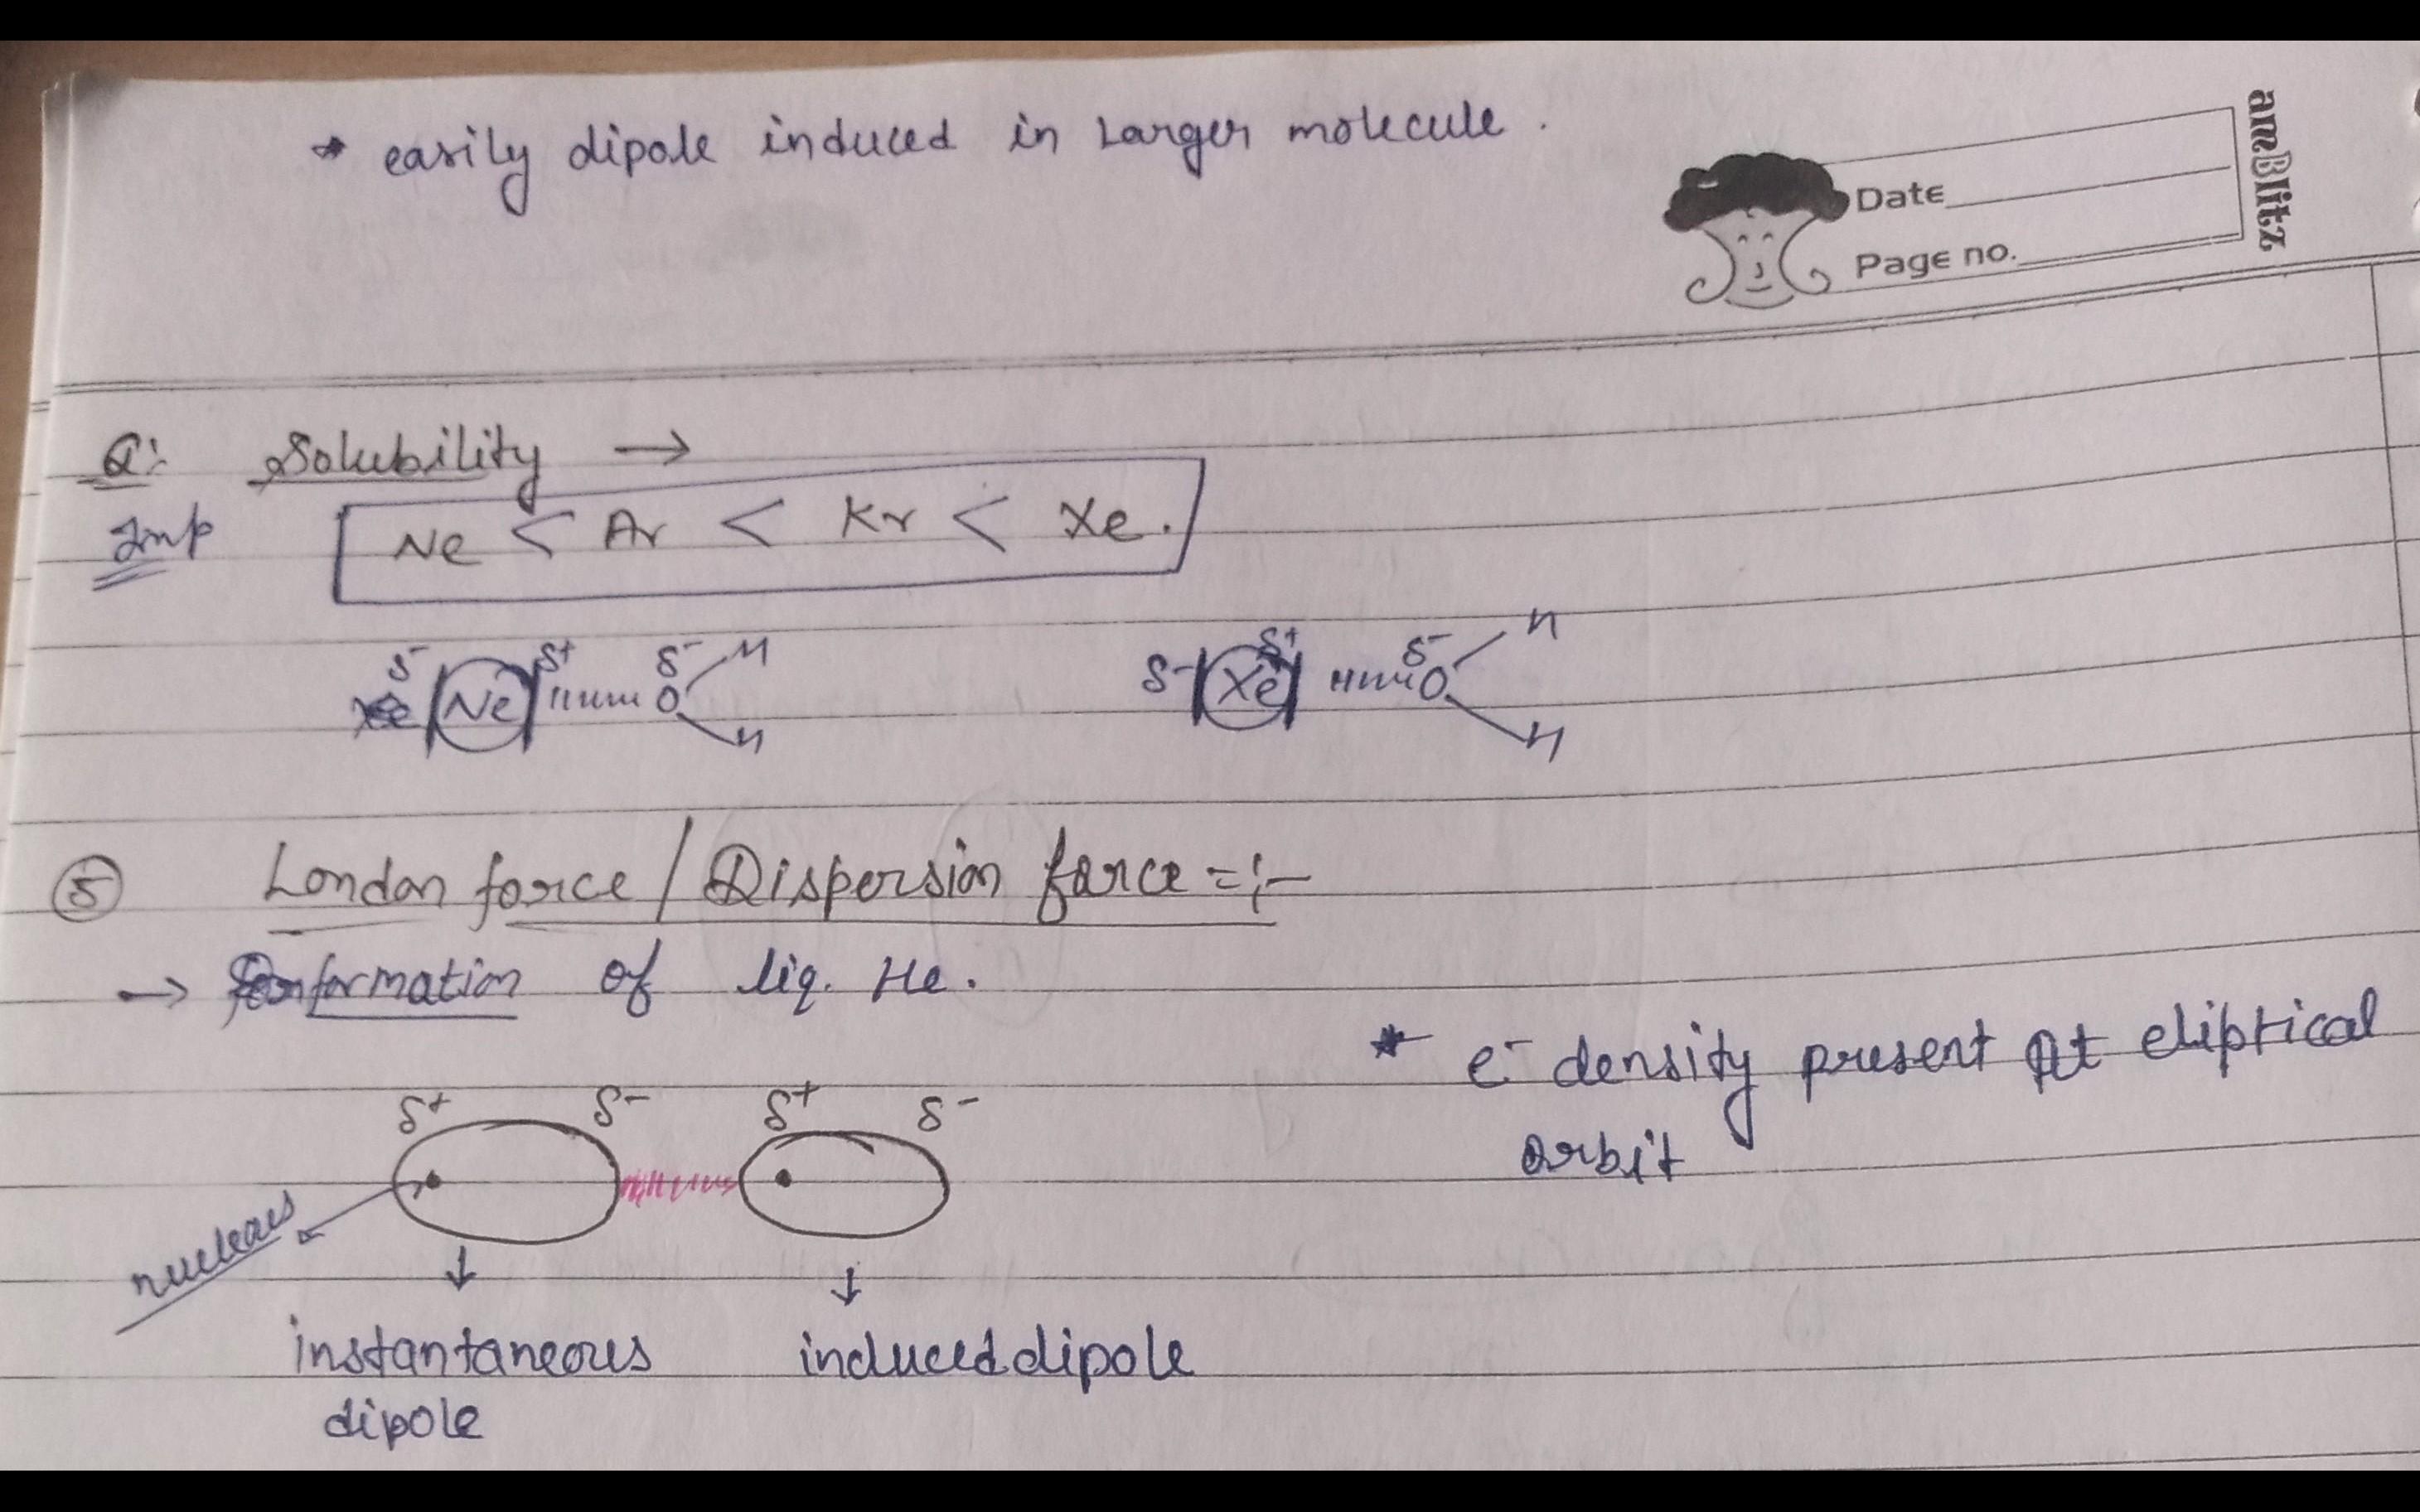 * easily dipole induced in Larger molecule.
amBlitz
Date
Page no.
Q: Solubility →
Imp
Ne < Ar < Kr < Xe.
δ- Ne δ+ δ- O H H
δ- Xe δ+ δ- O H H
⑤ London force / Dispersion force =:-
→ formation of liq. He.
* e- density present At eliptical
orbit
δ+ δ- δ+ δ-
nucleus
instantaneous induced dipole
dipole